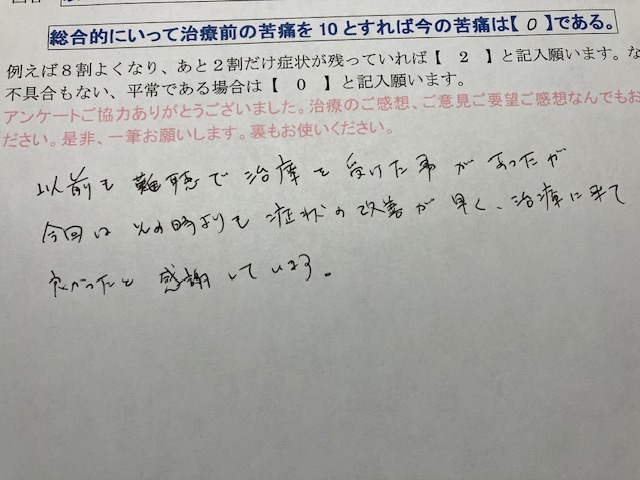 総合的にいって治療前の苦痛を10とすれば今の苦痛は【 0 】である。
例えば8割よくなり、あと2割だけ症状が残っていれば【 2 】と記入願います。な
不具合もない、平常である場合は【 0 】と記入願います。
アンケートご協力ありがとうございました。治療のご感想、ご意見ご要望ご感想なんでもお
ださい。是非、一筆お願いします。裏もお使いください。
以前も難聴で治療を受けた事があったが
今回はその時よりも症状の改善が早く、治療に来て
良かったと感謝しています。